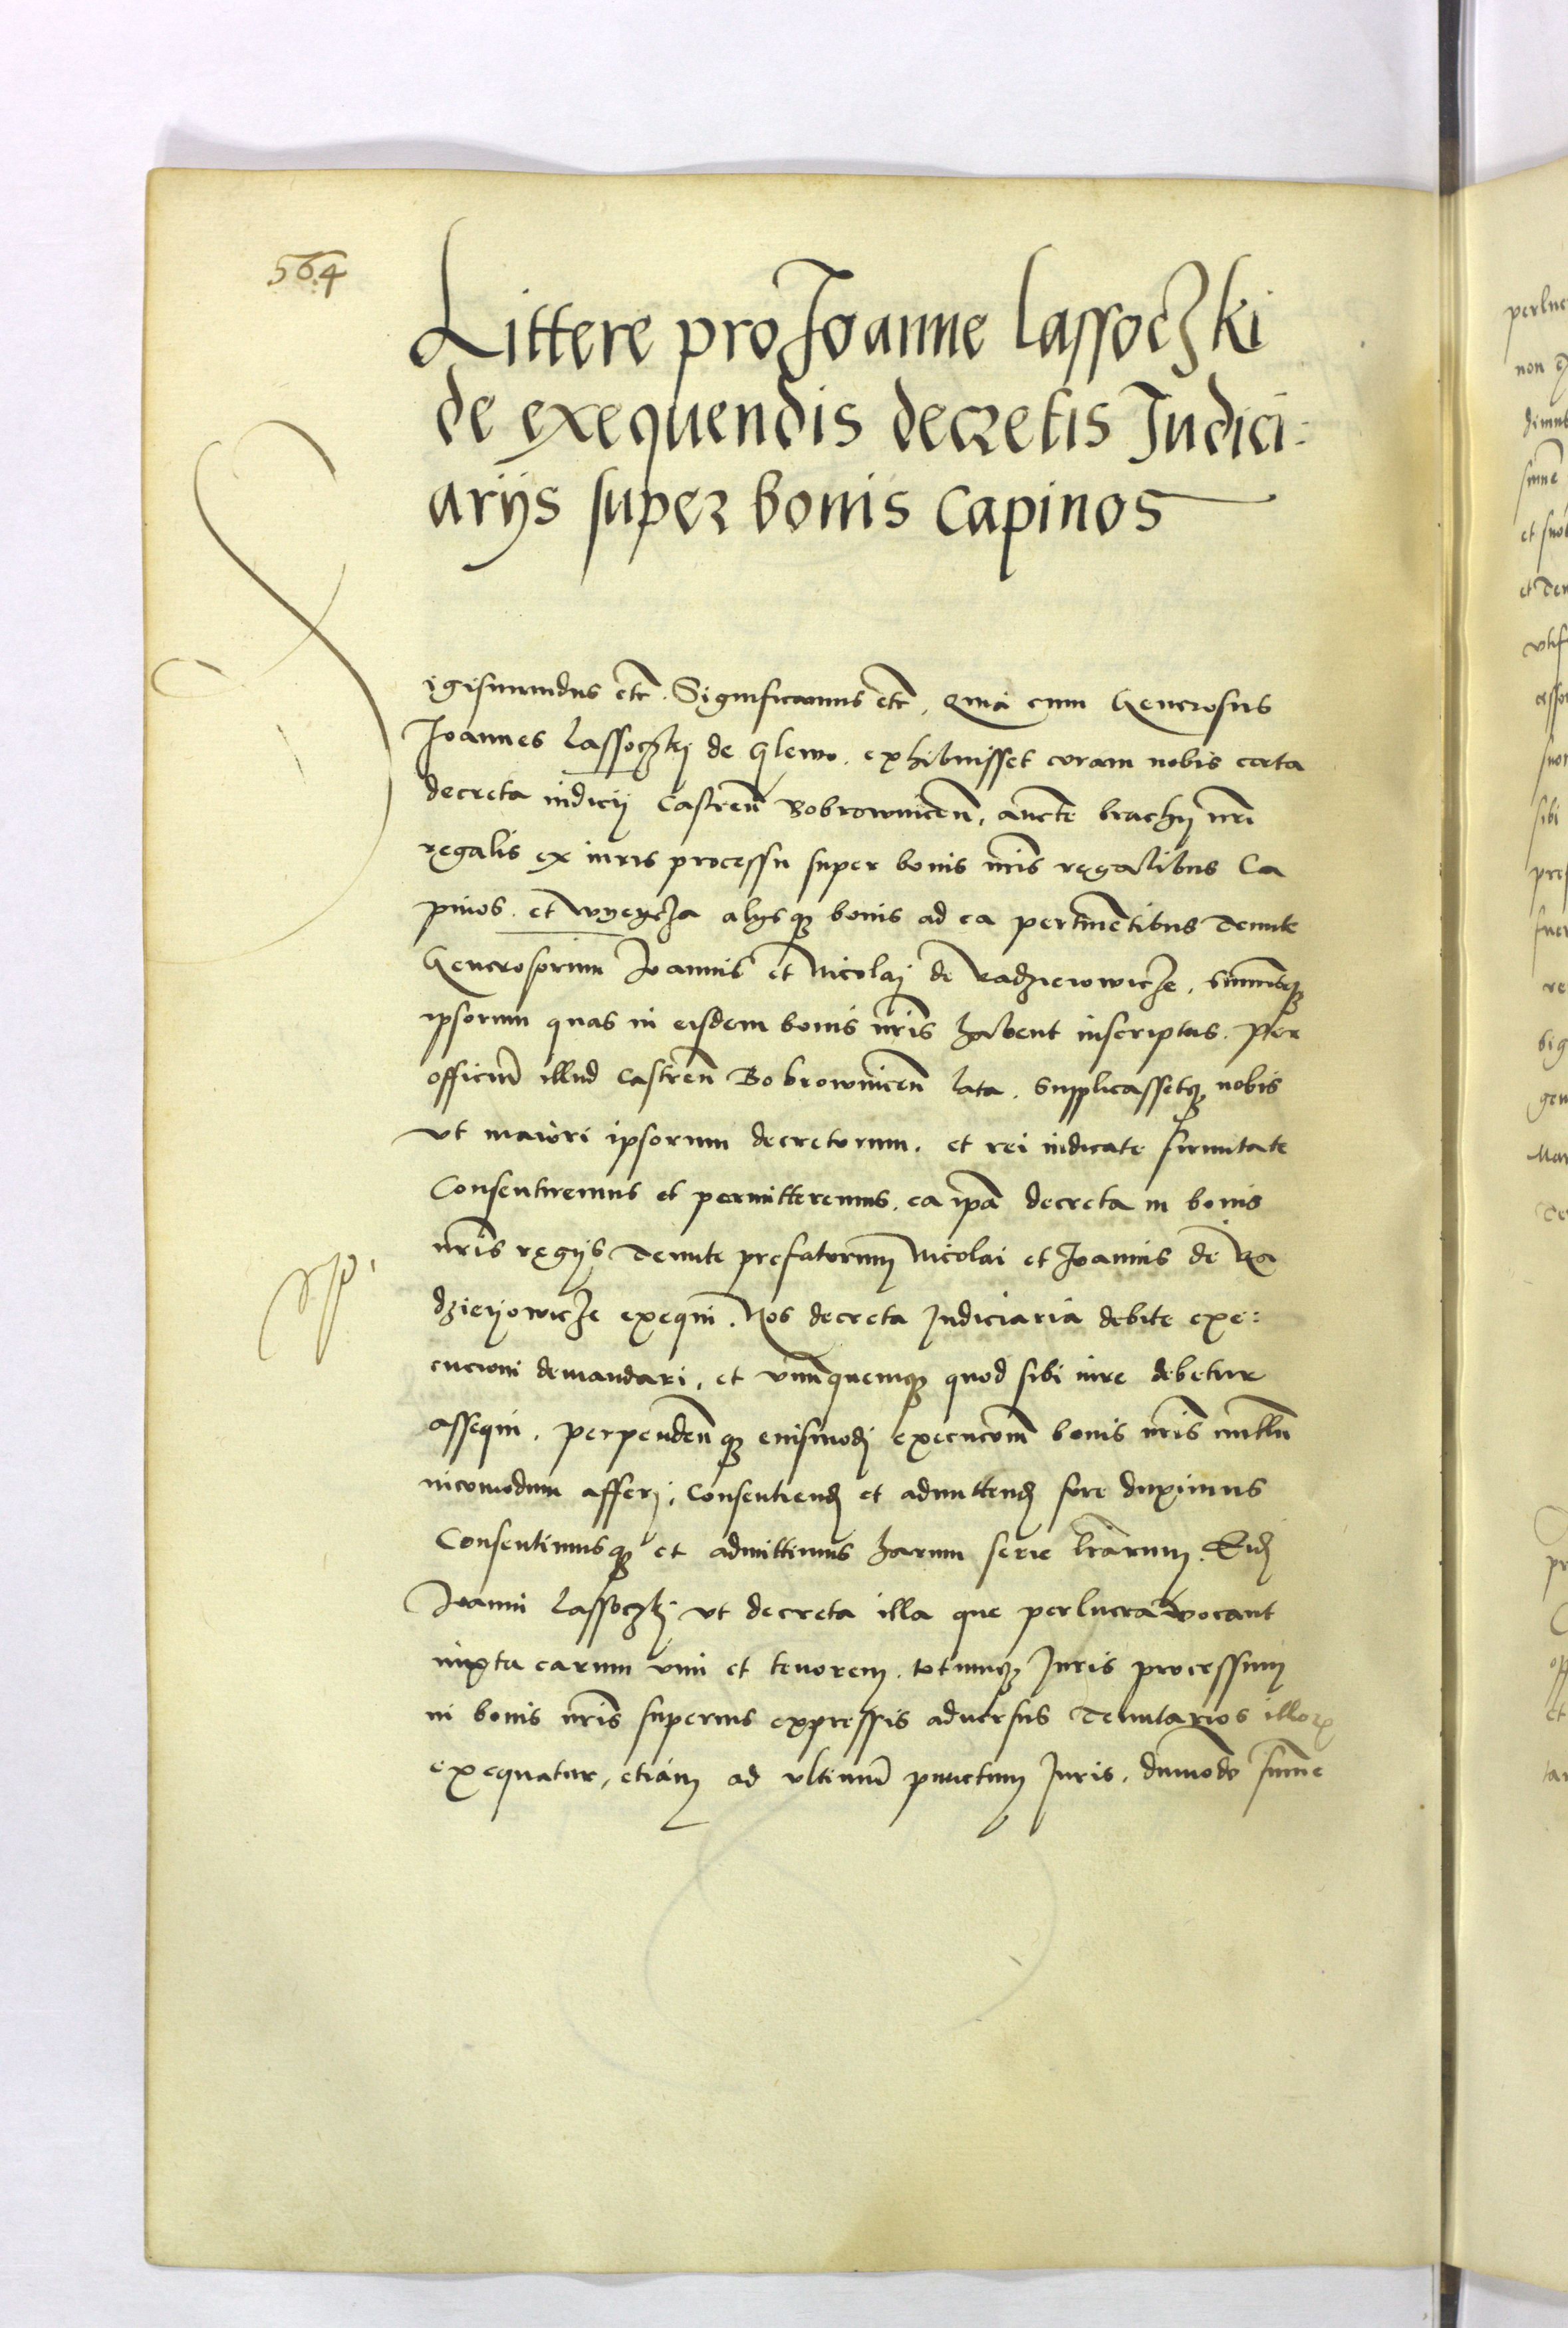 564
Littere pro Joanne Lassoczki
de exequendis decretis Judici:
arijs super bonis Capinos
Sigismundus etc̃. Significamus etc̃. Quia cum Generosus
Joannes Lassoczkj de Glewo. exhibuisset coram nobis certa
decreta iudicij Castreñ Bobrowniceñ, aucte brachij nr̃i
regalis ex iuris processu super bonis nr̃is regalibus Ca
pinos. et alijsq3 bonis ad ea pertineñtibus Tenute
Generosorum Joannis et Nicolaj de Radzieiowicze, summisq3
ipsorum quas in eisdem bonis nr̃is habent inscriptas. Per
officiũ illud Castreñ Bobrowniceñ lata. Supplicassetq3 nobis
vt maiori ipsorum decretorum. et rei iudicate firmitate
Consentiremus et permitteremus. ea ip̃a decreta in bonis
nr̃is regijs Tenute prefatorum Nicolai et Joannis de Ra
dzieijowicze exequi. Nos decreta Judiciaria debite exe:
cucioni demandari, et vnũquemq3 quod sibi iure debetur
assequi. perpendeñq3 eiusmodj execucioñ bonis nr̃is nullũ
incomodum afferj, Consentiend et admittend fore duximus
Consentimusq3 et admittimus harum serie lr̃arum. Eid
Joanni Lassoczkj vt decreta illa que perlucra vocant
iuxta earum vim et tenorem. totumq3 Juris processum
in bonis nr̃is superius expressis aduersus Tenutarios illor
exequatur, etiam ad vltimũ punctum Juris. dummodo summe